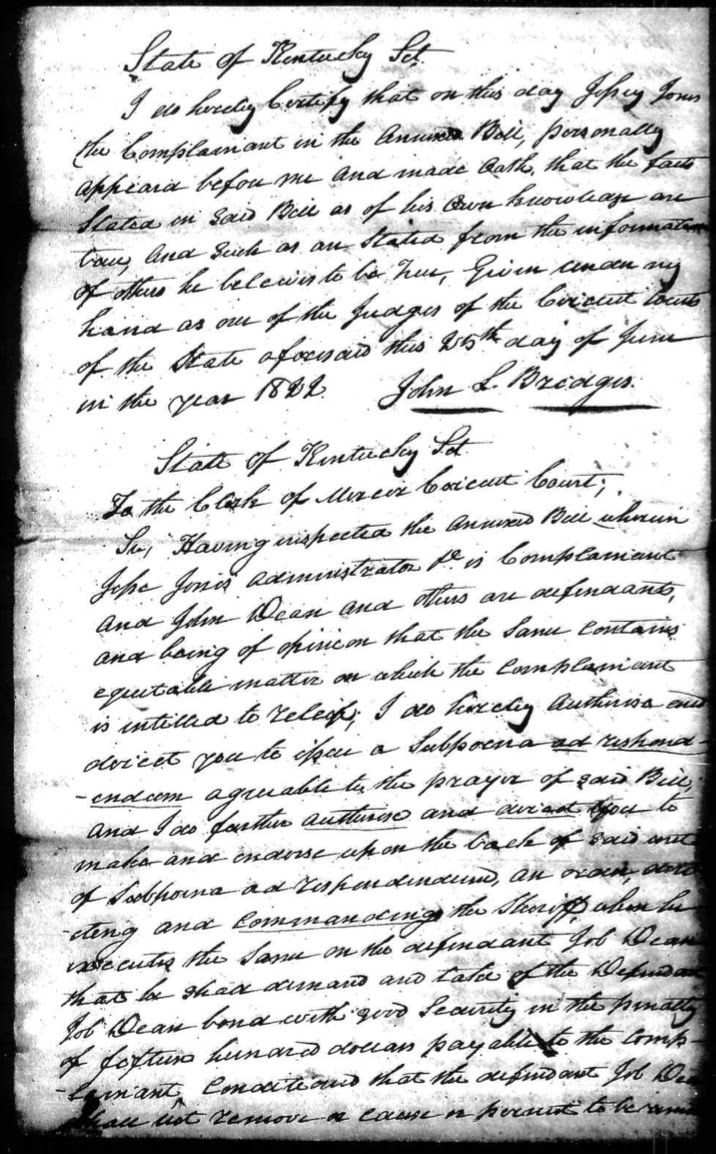 State of Kentucky Sct
I do hereby Certify that on this day Jessey Jones
the Complainant in the Annexed Bill, personally
appeard before me and made Oath, that the facts
Stated in said Bill as of his Own knowledge are
true, And Such as are Stated from the information
of others he beleives to be True, Given under my
hand as one of the Judges of the Circuit Courts
of the State aforesaid this 25th day of June
in the year 1822 John L. Bridges.
State of Kentucky Sct
To the Clerk of Mercer Circuit Court;
Sir, Having inspected the Annexed Bill wherein
Jesse Jones administrator &c is Complainant
and John Dean and others are defendants,
and being of opinion that the Same contains
equitable matter on which the Complainant
is intitled to releif; I do hereby Authorise and
direct you to issue a Subpoena ad respond-
-endum agreeable to the prayer of said Bill;
and I do further authorise and direct you to
make and endorse upon the back of said writ
of Subpoena ad respondendum, an order, dire
-cting and commanding the Sheriff when he
executes the Same on the defendant Job Dean
that he shall demand and take of the Defendant
Job Dean bond with good Security in the penalty
of fifteen hundred dollars payable to the Comp-
-lainant, Conditioned that the defendant Job Dean
shall not remove or cause or permit to be